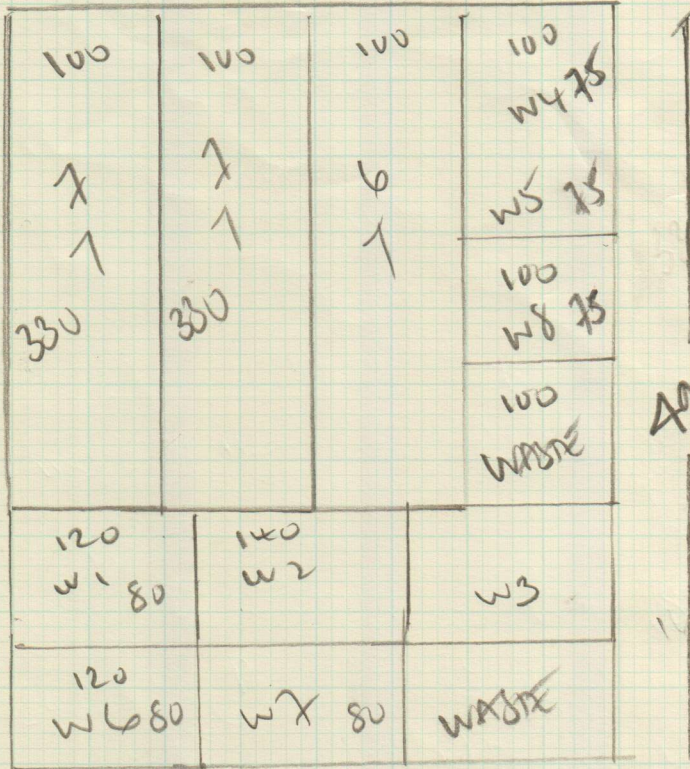 100
7
1
330
100
7
1
330
100
6
1
100
W4 75
W5 75
100
W8 75
100
WASTE
120
W1 80
140
W2
W3
120
W6 80
W7 80
WASTE